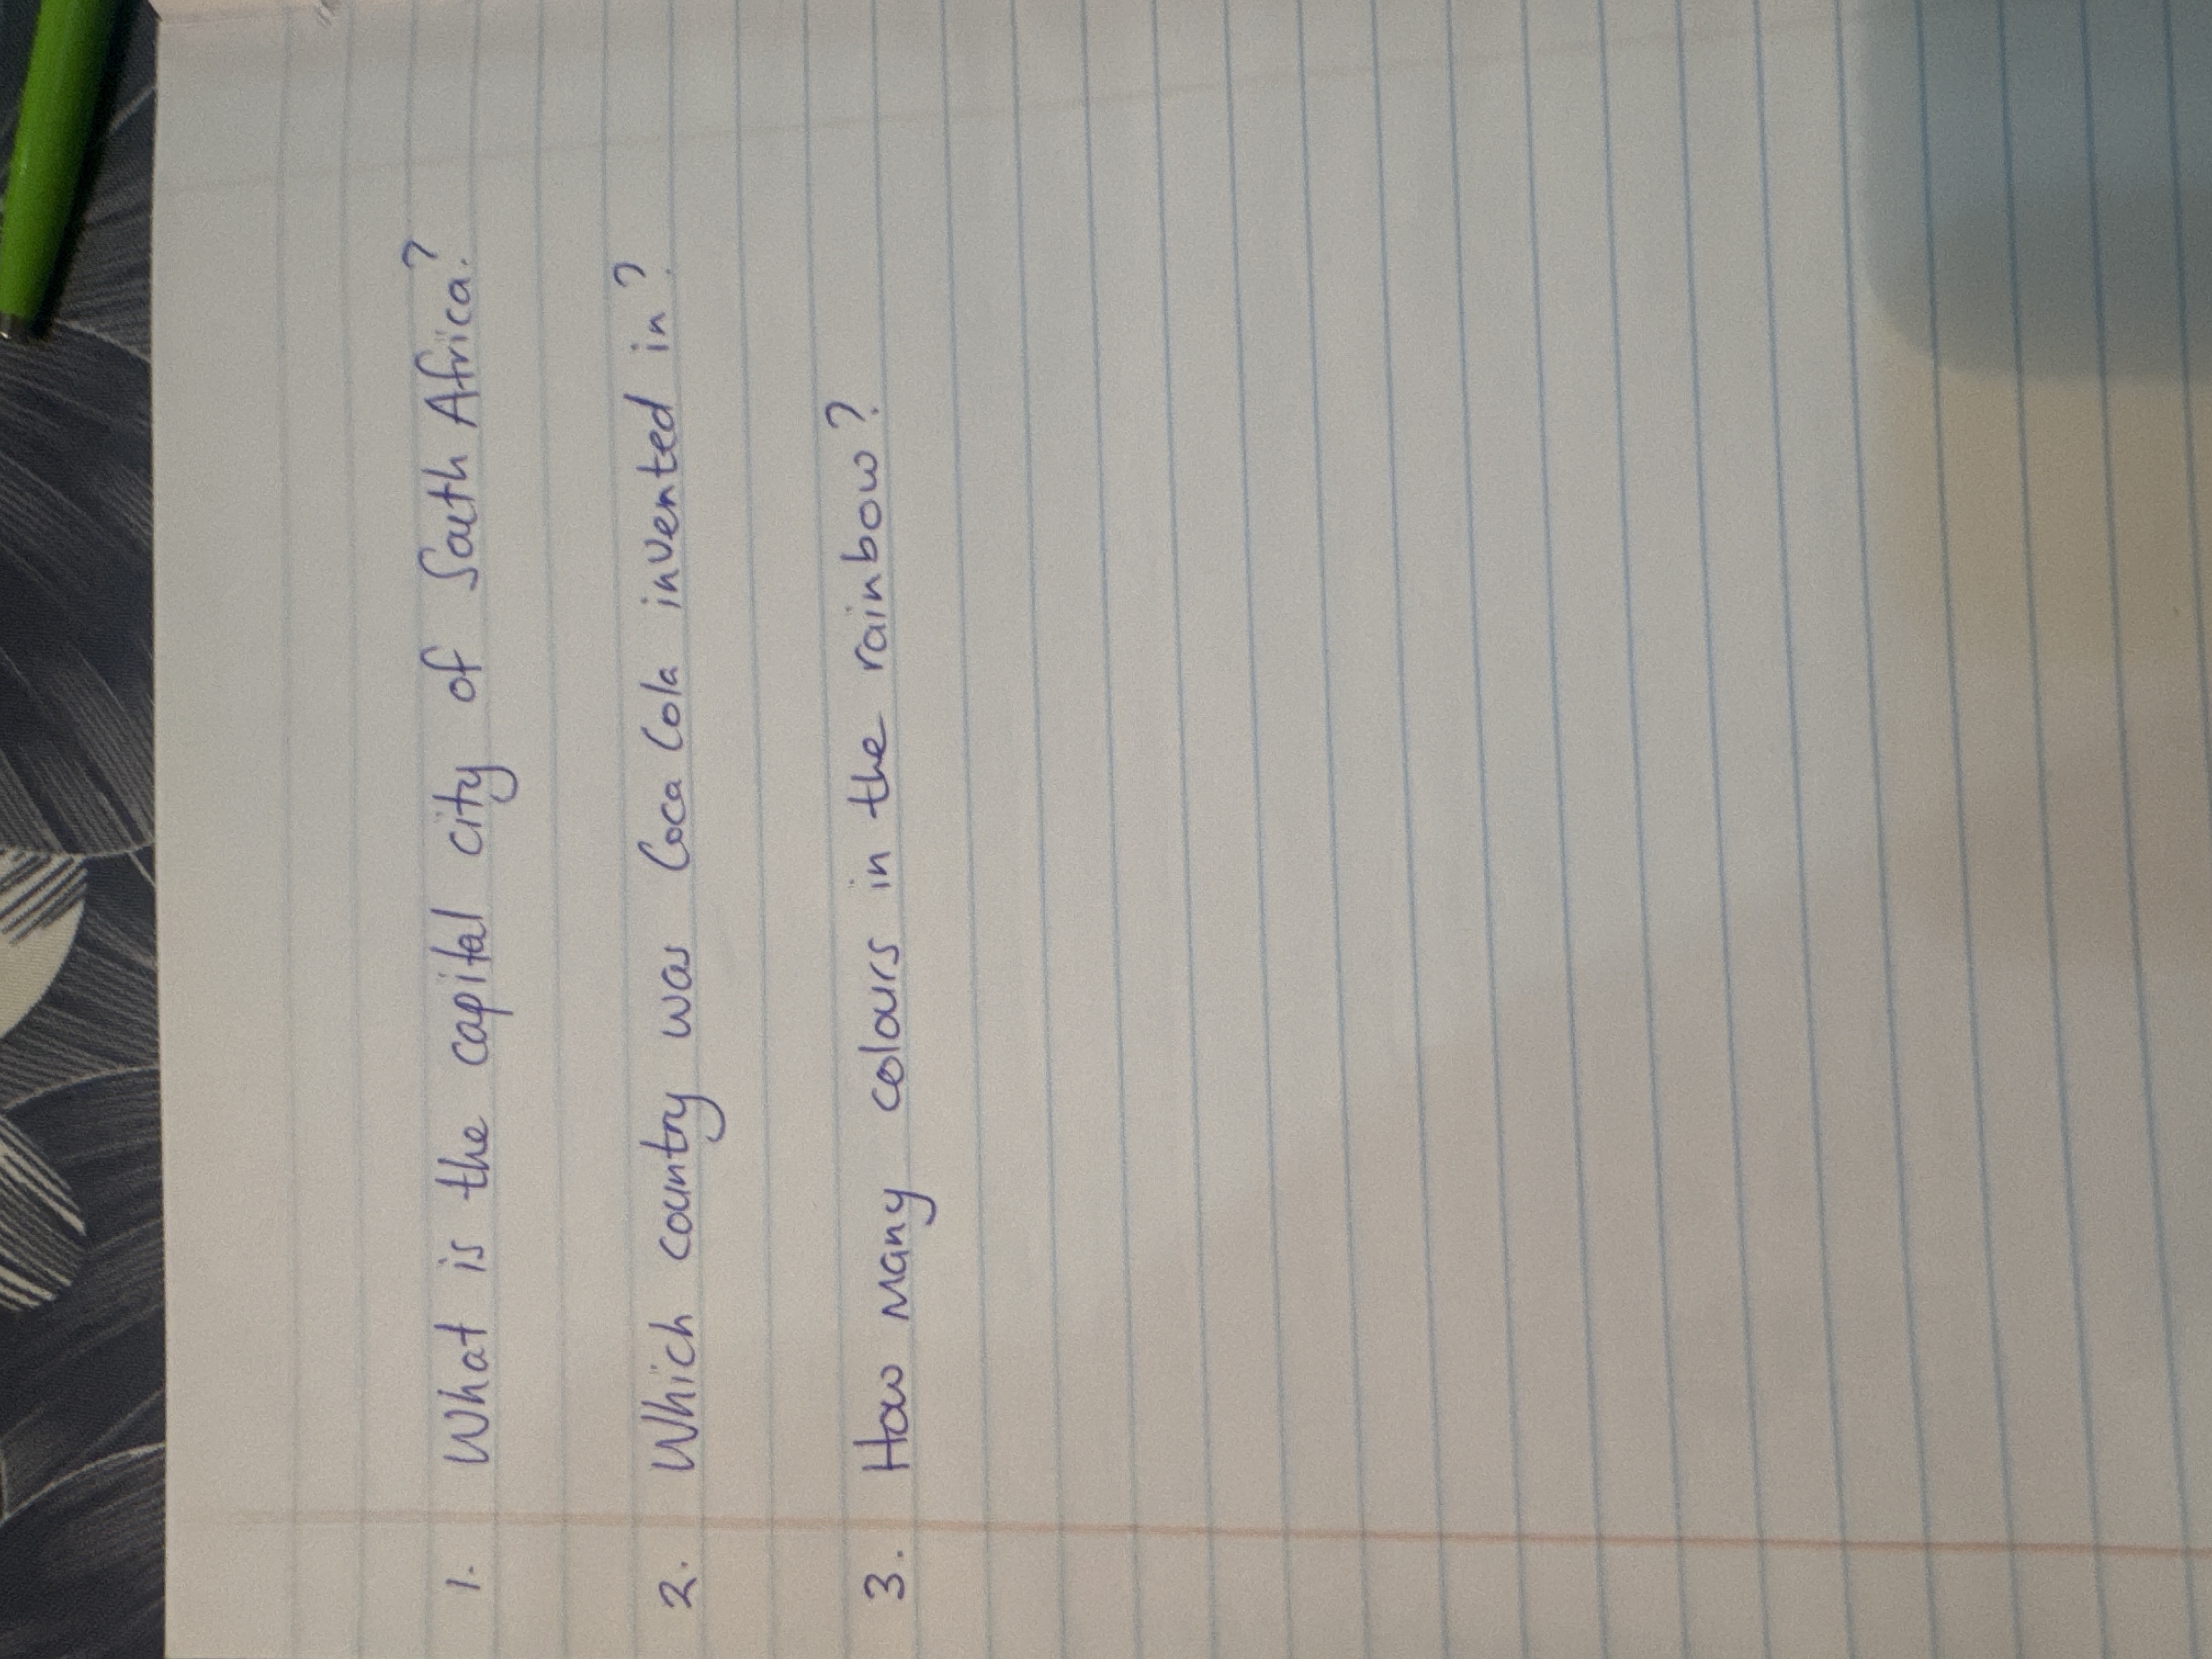 1. What is the capital city of South Africa?
2. Which country was Coca Cola invented in?
3. How many colours in the rainbow?